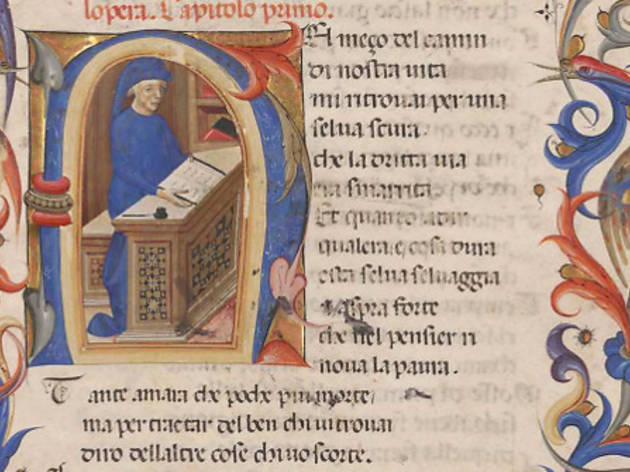 lopera. Capitolo primo.
El meço del camin
di nostra uita
mi ritrouai per una
selua scura.
che la dritta uia
era smarrita.
Et quanto adir
qualera e cosa dura
esta selua seluaggia
aspra forte
che nel pensier ri
noua la paura.
Tante amara che poche piu morte
ma per tractar del ben chi ui trouai
diro dellaltre cose chi uo scorte.